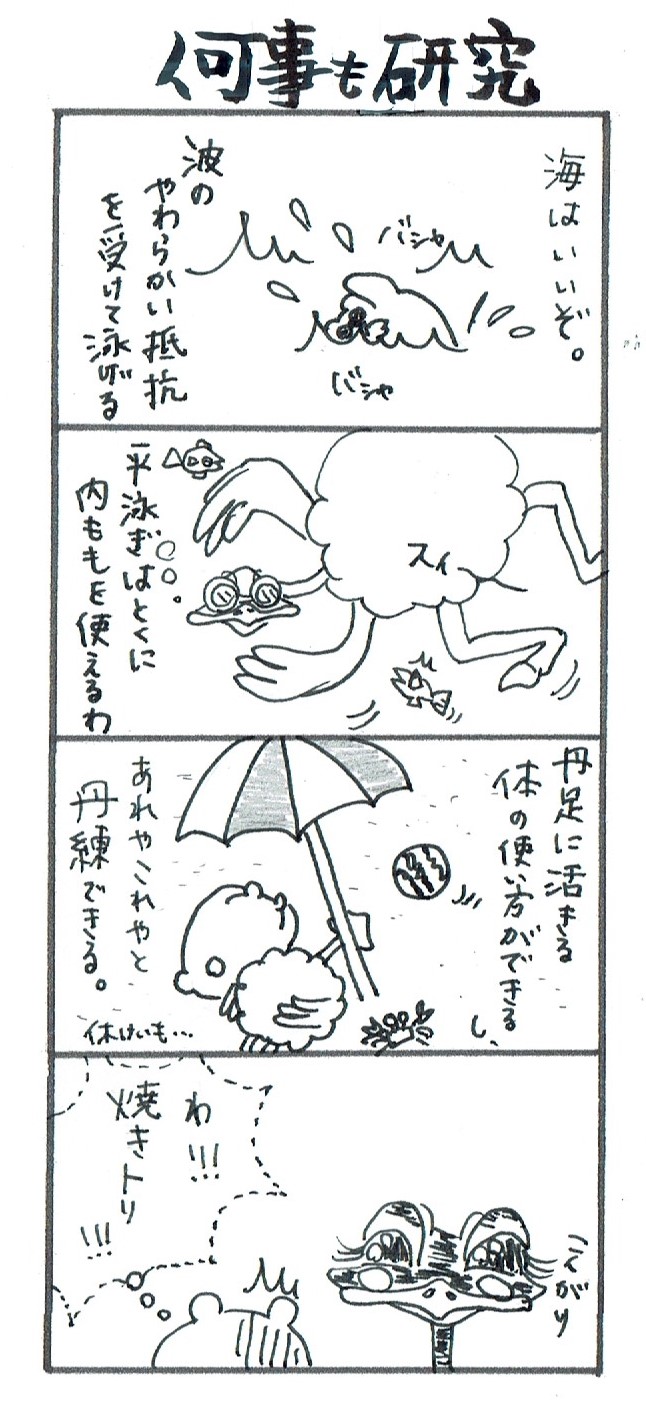 何事も研究
海はいいぞ。
バシャ
バシャ
波の
やわらかい抵抗
を受けて泳げる
スィー
平泳ぎはとくに
内ももを使えるわ
丹足に活きる
体の使い方ができる
し、
あれやこれやと
丹練できる。
休けいも…
こんがり
わ!!!
焼きトリ
!!!